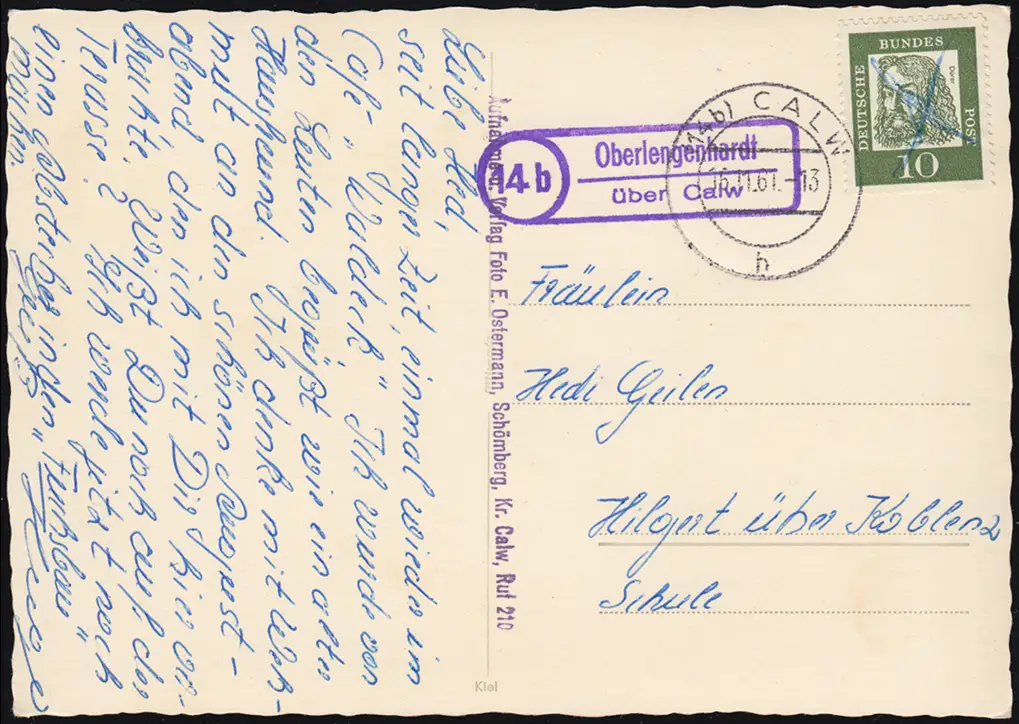 Liebe Hed,
seit langer Zeit, einmal wieder im
Cafe „Waldeck" Ich wurde von
den Leuten begrüßt wie ein alter
Haushund. Ich denke mit Weh-
mut an den schönen August-
abend den ich mit Dir hier ver-
brachte. Weißt Du noch auf der
Terasse? Ich werde jetzt noch
einen gbstergeinsten „Fuchsbau"
machen.
Aufnahme u. Verlag Foto E. Ostermann, Schömberg, Kr. Calw, Ruf 210
Kiel
14b
Oberlengenhardt
über Calw
(14b) CALW
16.11.61.-13
h
DEUTSCHE
BUNDES
POST
Dürer
10
Fräulein
Hedi Geilen
Hilgert über Koblenz
Schule